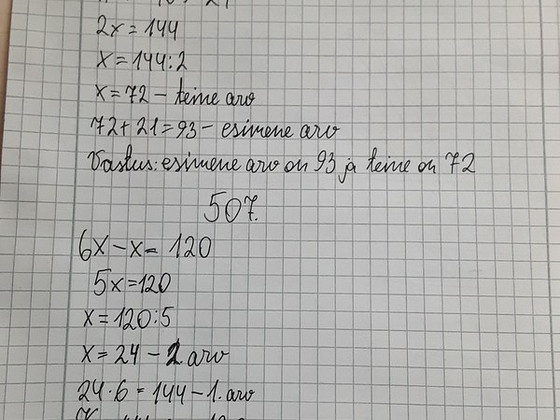 2x = 144
x = 144:2
x = 72 - teine arv
72 + 21 = 93 - esimene arv
Vastus: esimene arv on 93 ja teine on 72
507.
6x - x = 120
5x = 120
x = 120:5
x = 24 - 2 arv
24 · 6 = 144 - 1. arv